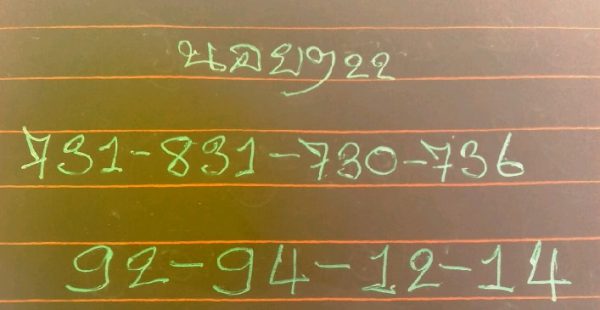 นอยๆ22
731-831-730-736
92-94-12-14